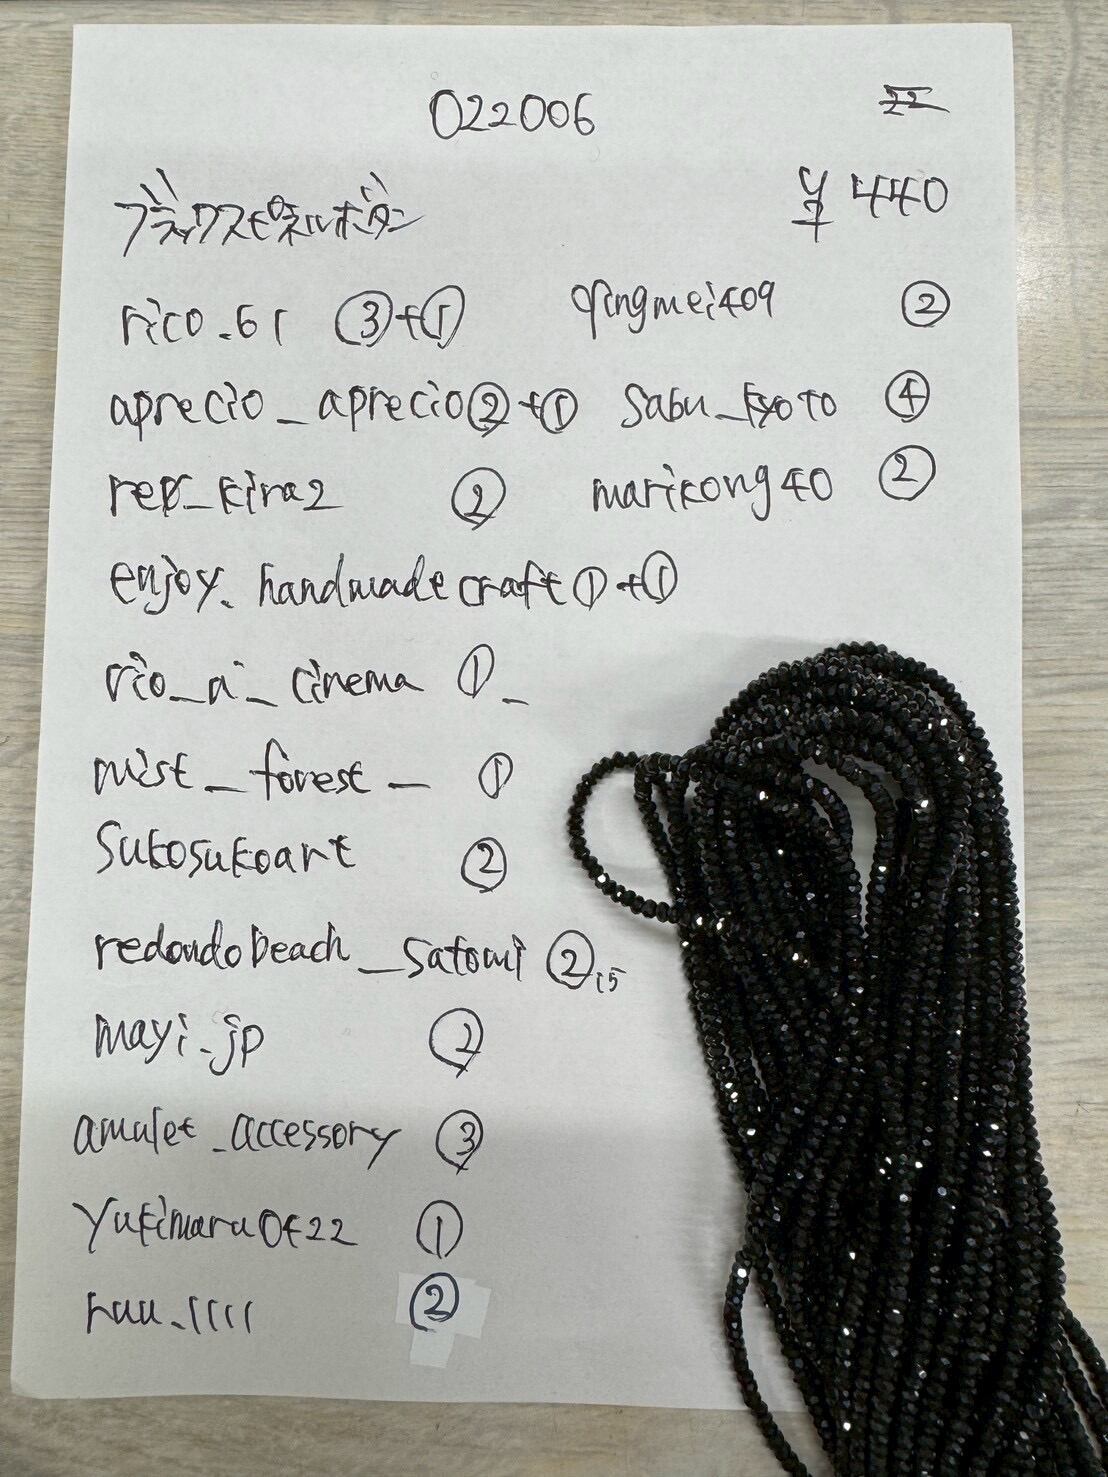 022006
ブラックスピネルボタン ¥440
rico.61 ③+① qingmei409 ②
aprecio_aprecio②+① sabu_kyoto ④
_kira2 ② marikong40 ②
enjoy.handmadecraft①+①
rio_a_cinema ①_
mist_forest_ ①
sukosukoart ②
redondobeach_satomi ②15
mayi.jp ②
amulet_accessory ③
yukimaru0422 ①
ruu.1111 ②